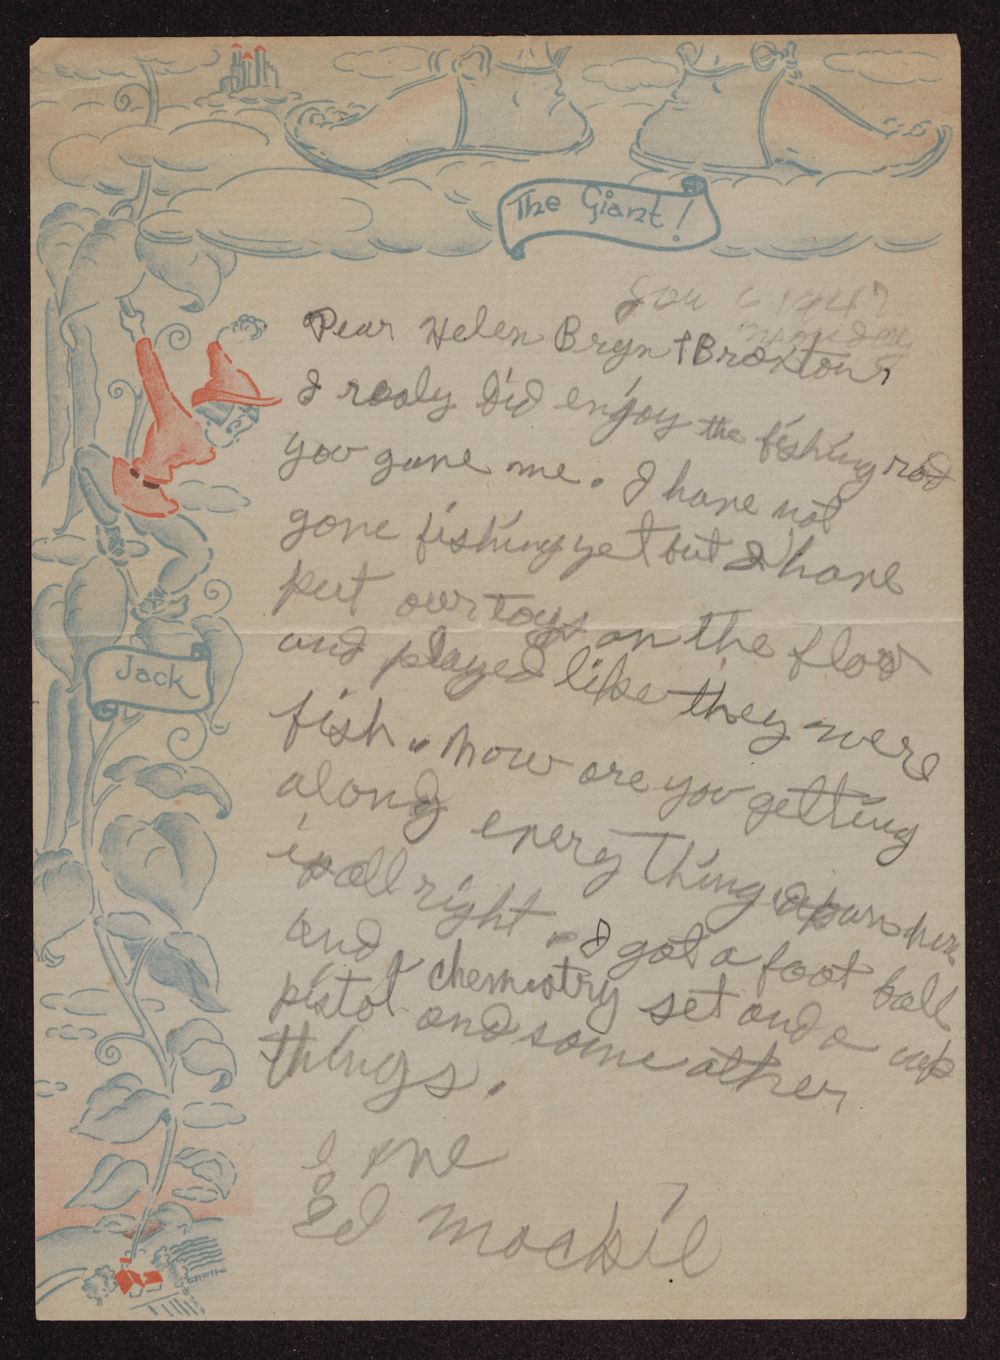 The Giant!
Jan 6 1947
monday
Dear Helen Bryn + Braxton,
I realy did enjoy the fishing rod
you gave me. I have not
gone fishing yet but I have
put our toys on the floor
and played like they were
fish. How are you getting
along every thing
is all right. I got a foot ball
and chemistry set and a cap
pistol and some other
things.
Jack
Ed Mackie